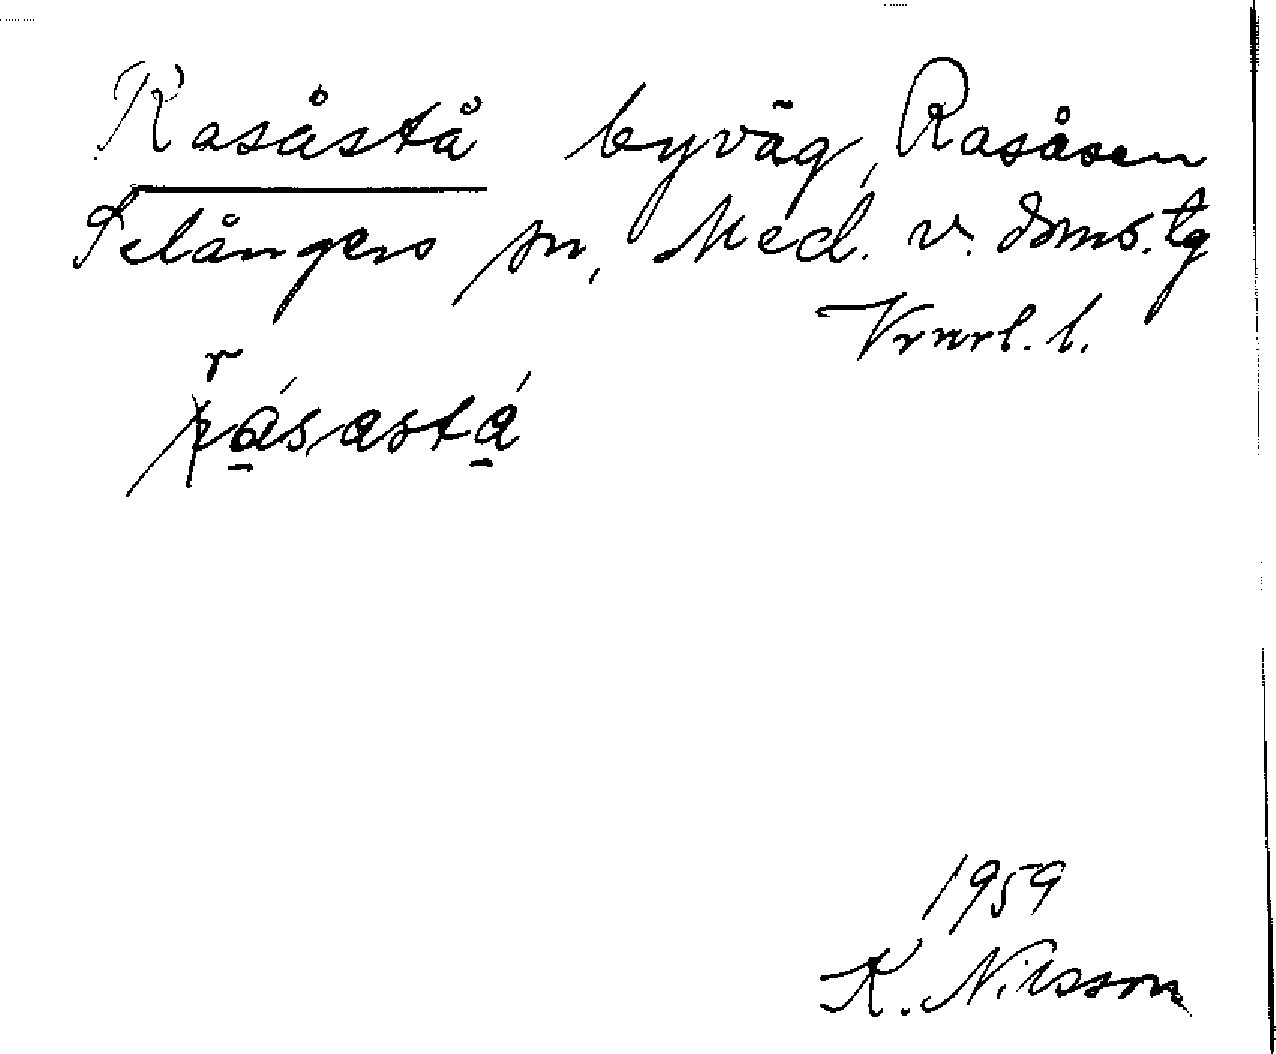 Rasåstå byväg, Rasåsen
Selångers sn, Med. v. doms.tg
Vrnrl. l.
r
rásastá
1959
K. Nilsson